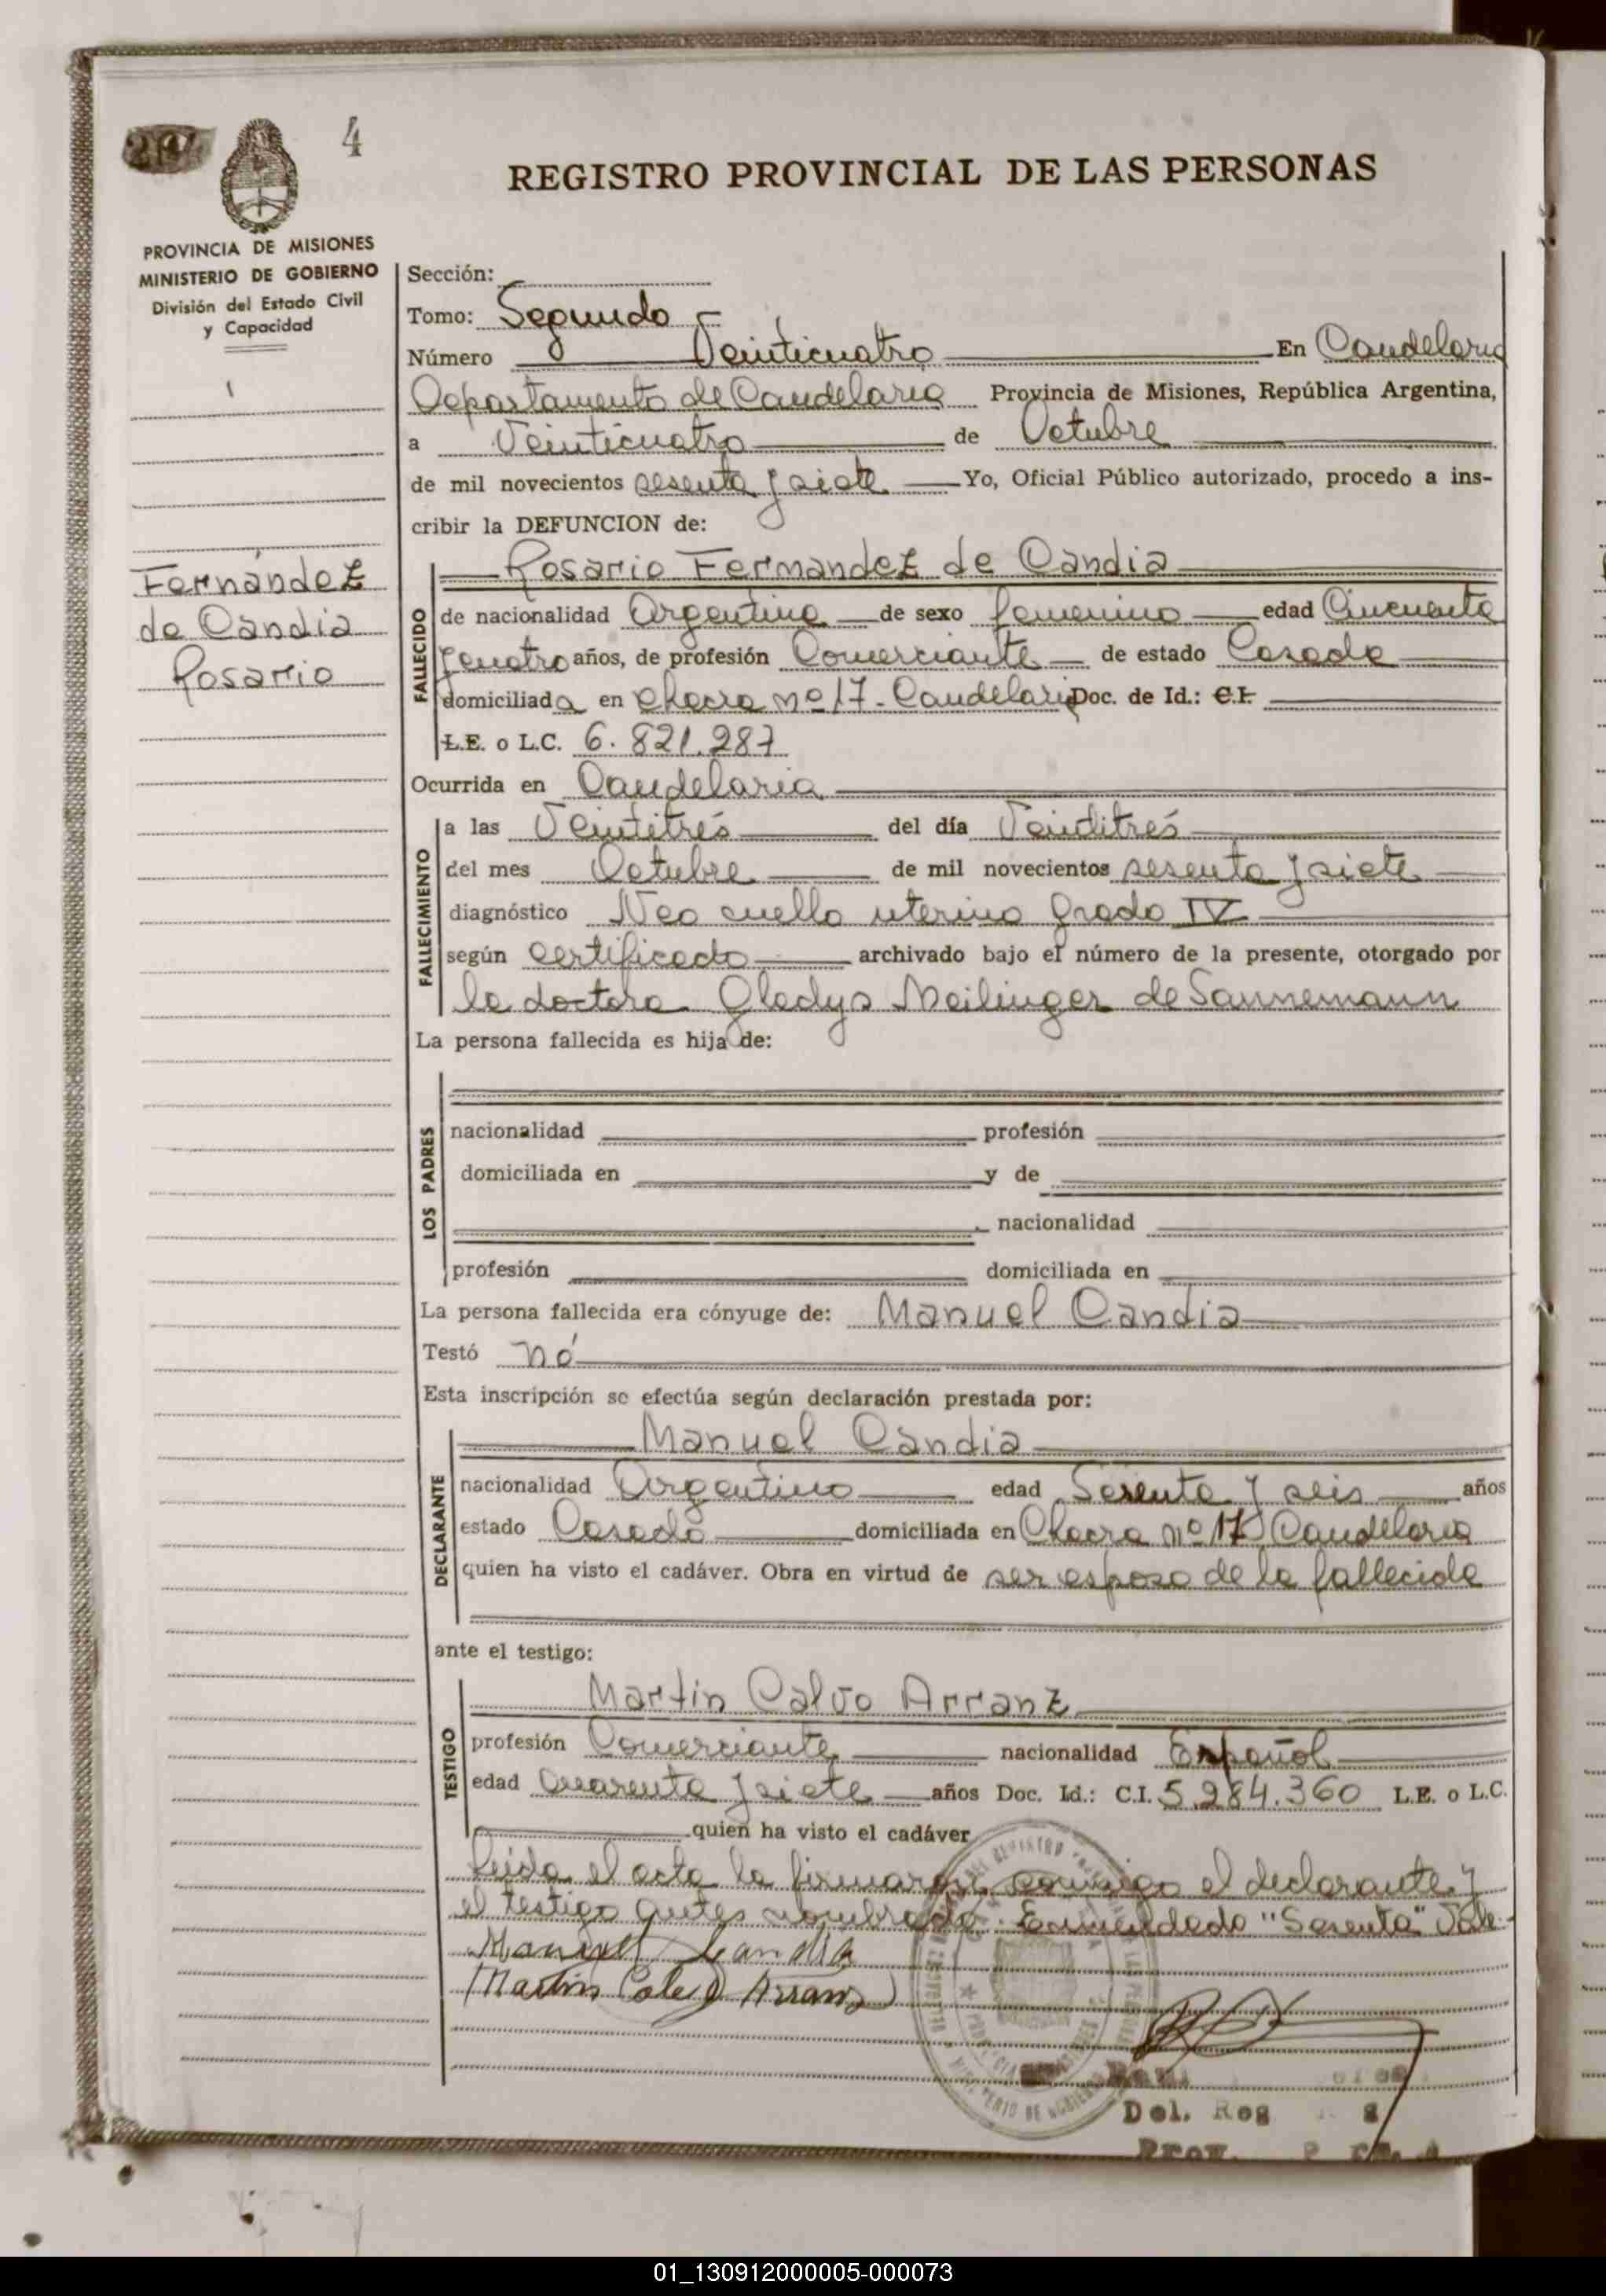 4
REGISTRO PROVINCIAL DE LAS PERSONAS
PROVINCIA DE MISIONES
MINISTERIO DE GOBIERNO
División del Estado Civil
y Capacidad
Fernández
de Candia
Rosario
Sección:
Tomo: Segundo
Número Veinticuatro En Candelaria
Departamento de Candelaria Provincia de Misiones, República Argentina,
a Veinticuatro de Octubre
de mil novecientos sesenta y siete Yo, Oficial Público autorizado, procedo a ins-
cribir la DEFUNCION de:
Rosario Fernandez de Candia
FALLECIDO
de nacionalidad Argentina de sexo femenino edad Cincuenta
y cuatro años, de profesión Comerciante de estado Casada
domiciliada en Chacra nº 17 - Candelaria Doc. de Id.: C.I.
L.E. o L.C. 6.821.287
Ocurrida en Candelaria
FALLECIMIENTO
a las Veintitrés del día Veintitrés
del mes Octubre de mil novecientos sesenta y siete
diagnóstico Neo cuello uterino grado IV
según certificado archivado bajo el número de la presente, otorgado por
la doctora Gladys Meilinger de Sannemann
La persona fallecida es hija de:
LOS PADRES
nacionalidad profesión
domiciliada en y de
nacionalidad
profesión domiciliada en
La persona fallecida era cónyuge de: Manuel Candia
Testó nó
Esta inscripción se efectúa según declaración prestada por:
Manuel Candia
DECLARANTE
nacionalidad Argentino edad Sesenta y seis años
estado Casado domiciliada en Chacra nº 17 Candelaria
quien ha visto el cadáver. Obra en virtud de ser esposo de la fallecida
ante el testigo:
Martin Calvo Arranz
TESTIGO
profesión Comerciante nacionalidad Español
edad Cuarenta y siete años Doc. Id.: C.I. 5.284.360 L.E. o L.C.
quien ha visto el cadáver
Leida el acta la firmaron conmigo el declarante y
el testigo antes nombrado. Enmendado "Sesenta" Vale.
Manuel Candia
Martin Calvo Arranz
Del. Reg
Prov.
01_130912000005-000073